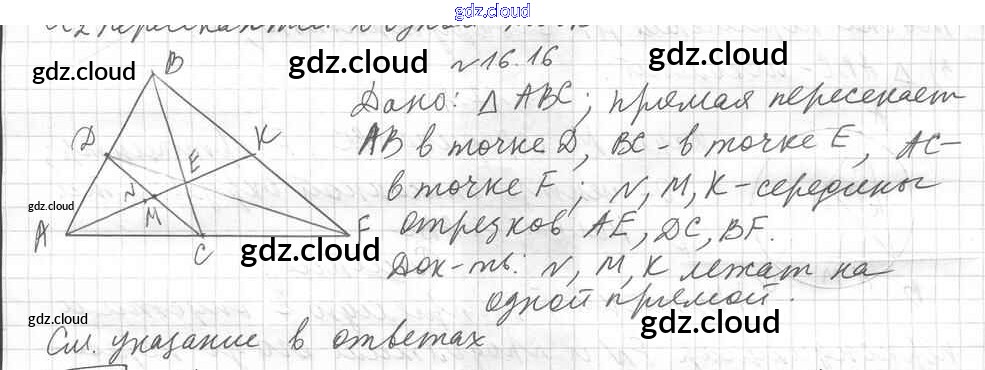 gdz.cloud
№16.16
Дано: △ ABC; прямая пересекает
AB в точке D, BC - в точке E, AC-
в точке F; N, M, K - середины
отрезков AE, DC, BF.
Док-ть: N, M, K лежат на
одной прямой.
См. указание в ответах
B
D
K
E
N
M
A
C
F
gdz.cloud
gdz.cloud
gdz.cloud
gdz.cloud
gdz.cloud
gdz.cloud
gdz.cloud